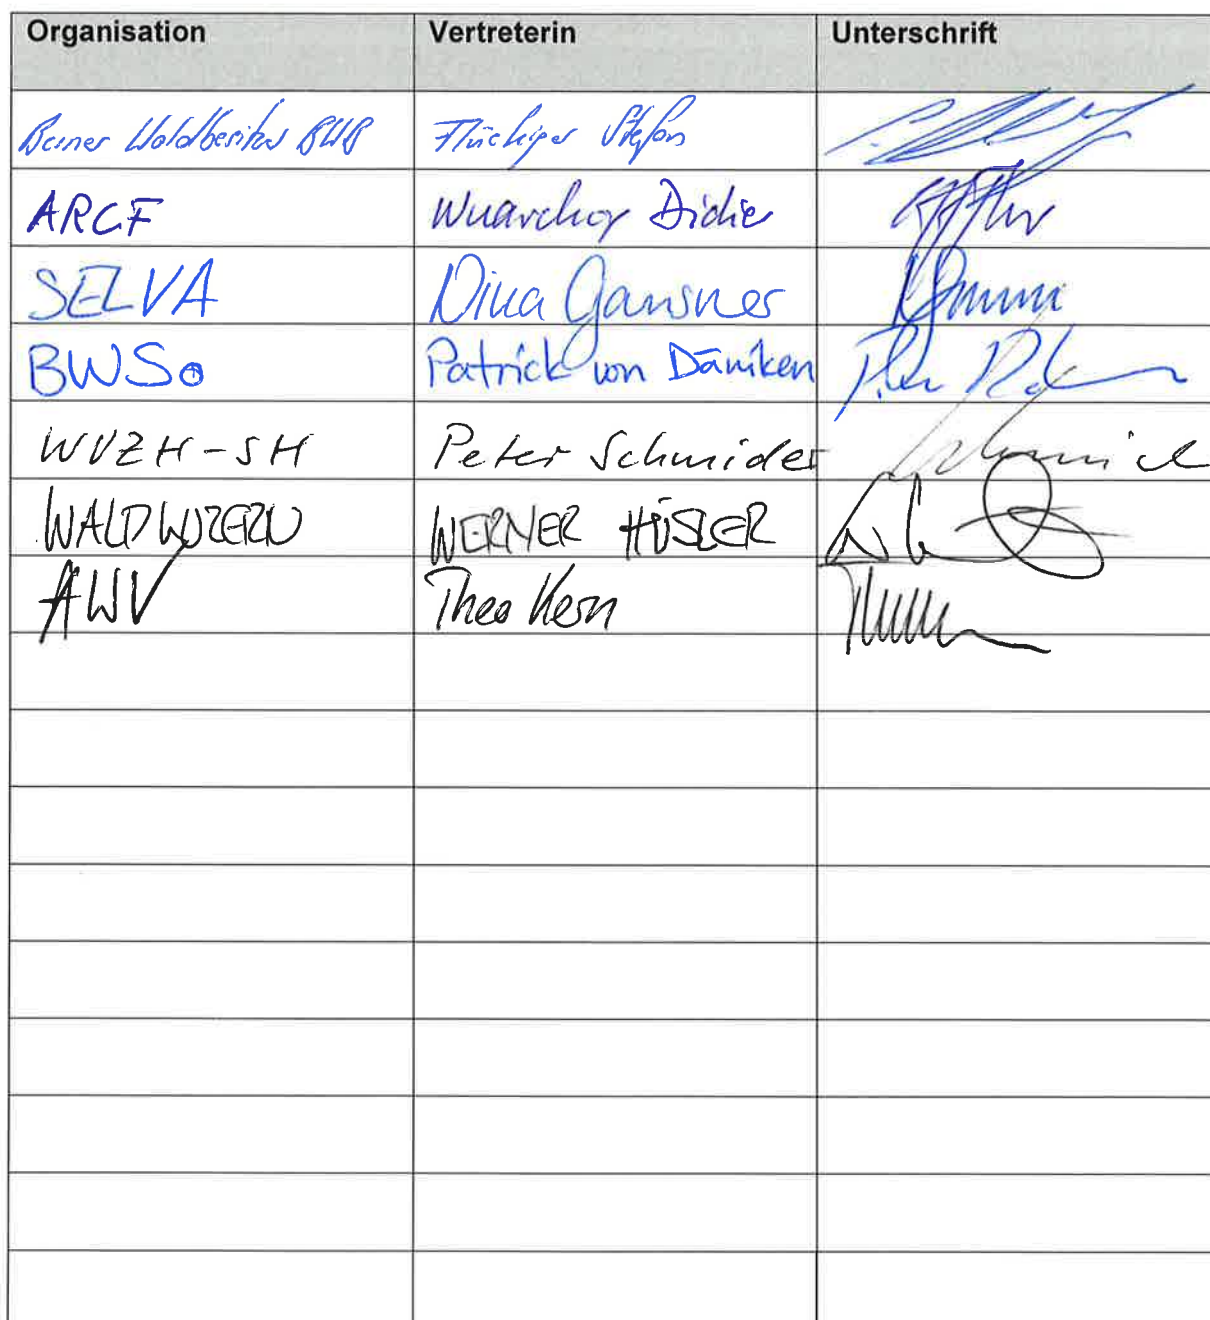 Organisation Vertreterin Unterschrift
Berner Waldbesitzer BWB Flückiger Stefan
ARCF Wuarchoz Didie
SELVA Dina Gansner
BWSo Patrick von Däniken
WVZH-SH Peter Schmider
WALDLUZERN WERNER HÜSLER
AWV Theo Kern